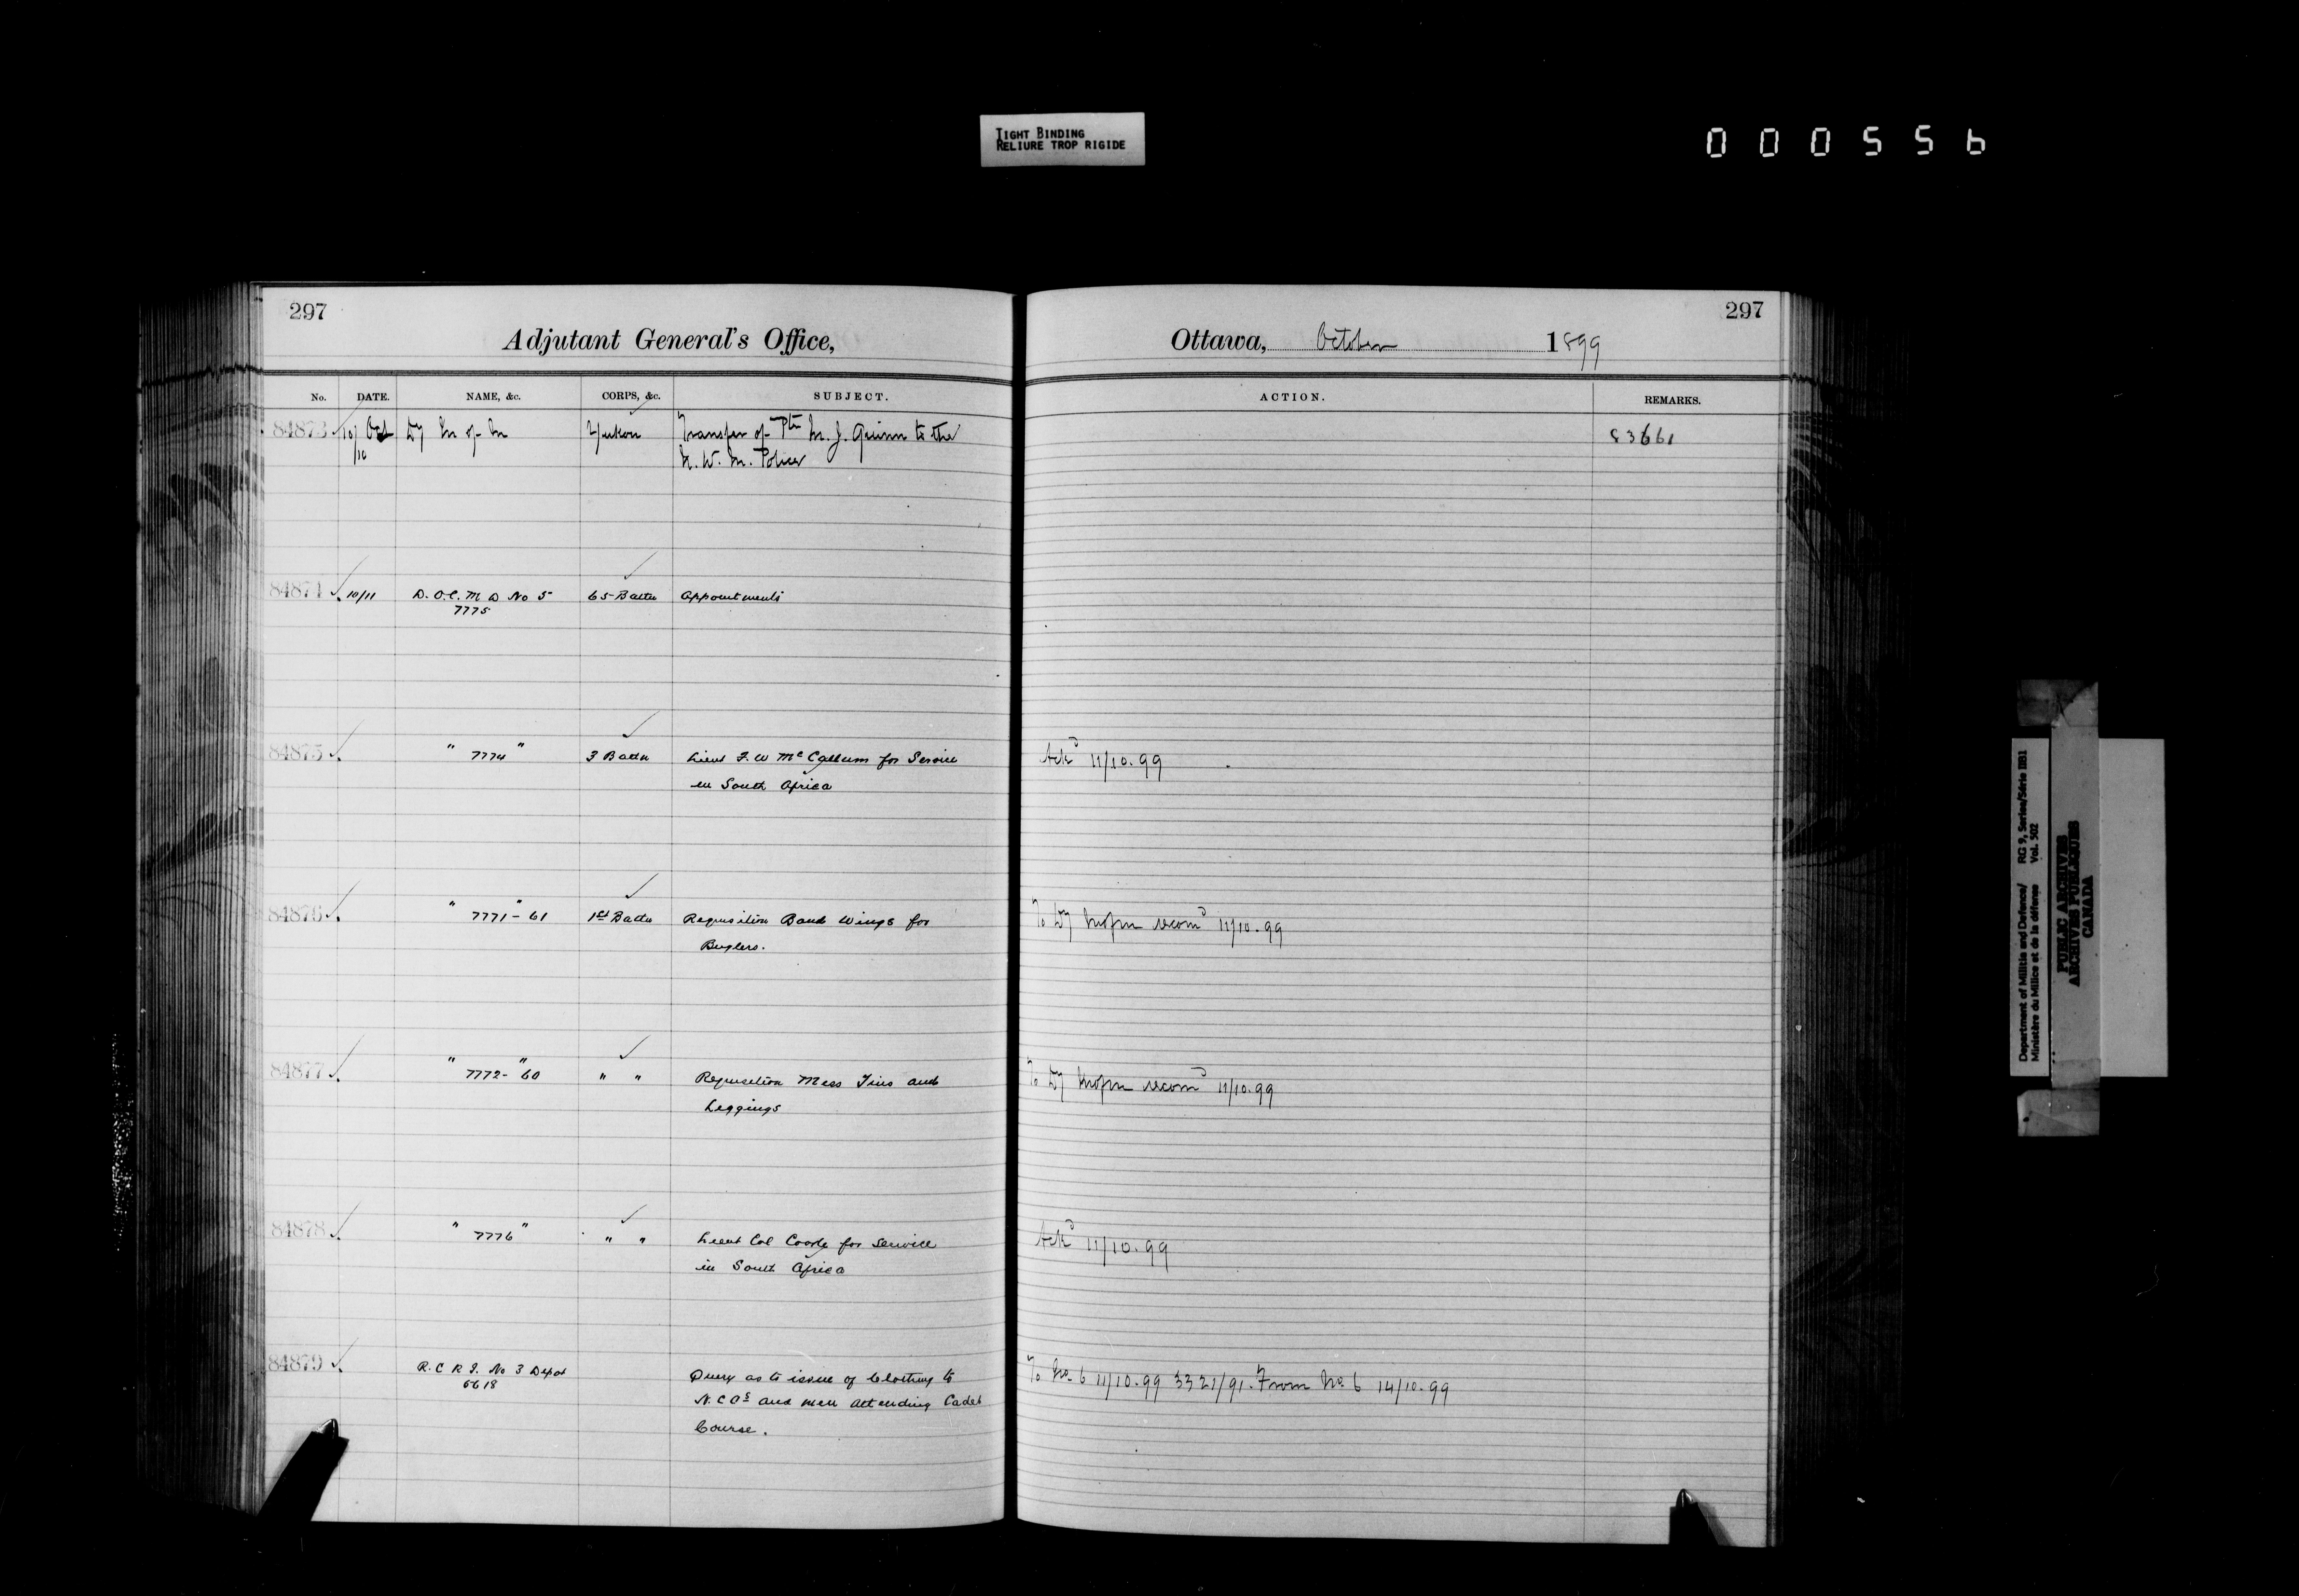 TIGHT BINDING
RELIURE TROP RIGIDE
000556
297
Adjutant General's Office,
No. DATE. NAME, &c. CORPS, &c. SUBJECT.
84873 10/10 Oct Dy M of M Yukon Transfer of Pte M. J. Quinn to the
N. W. M. Police
84874 10/11 D.O.C. M D No 5 65 Battn Appointments
7775
84875 " 7774 " 3 Battn Lieut F. W McCallum for Service
in South Africa
84876 " 7771 - 61 " 1st Battn Requisition Band Wings for
Buglers.
84877 " 7772 - 60 " " " Requisition Mess Tins and
Leggings
84878 " 7776 " " " Lieut Col for Service
in South Africa
84879 R. C R I. No 3 Depot Query as to issue of Clothing to
6618
N. C Os and men attending Cadet
Course.
297
Ottawa, October 1899
ACTION. REMARKS.
83661
Ackd 11/10.99
To Dy MofM recomd 11/10.99
To Dy MofM recomd 11/10.99
Ackd 11/10.99
To No. 6 11/10.99 3321/91. From No. 6 14/10.99
Department of Militia and Defence/ RG 9, Series/Série IIB1
Ministère du Milice et de la défense Vol. 502
PUBLIC ARCHIVES
ARCHIVES PUBLIQUES
CANADA